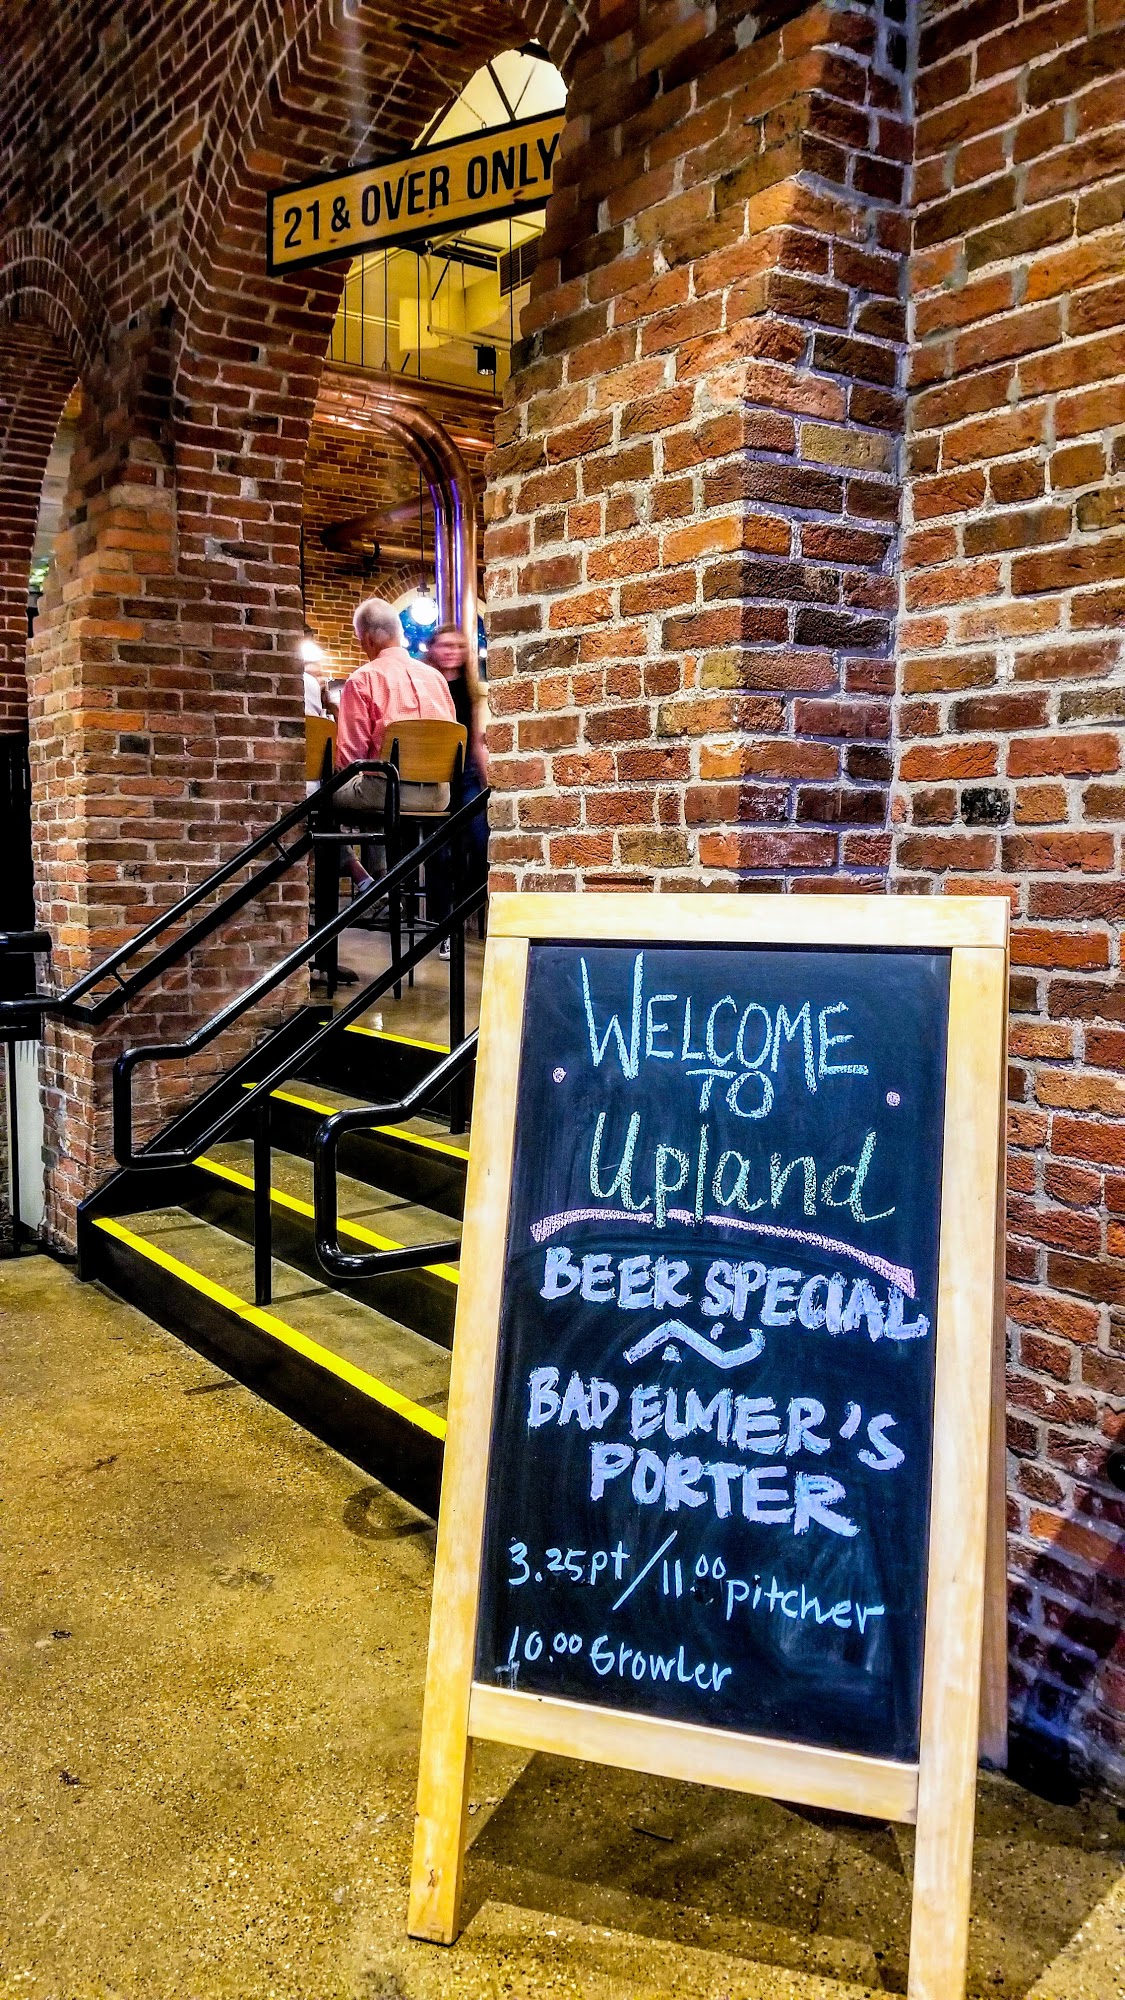 21 & OVER ONLY
WELCOME
TO
Upland
BEER SPECIAL
BAD ELMER'S
PORTER
3.25pt/11.00 pitcher
10.00 Growler